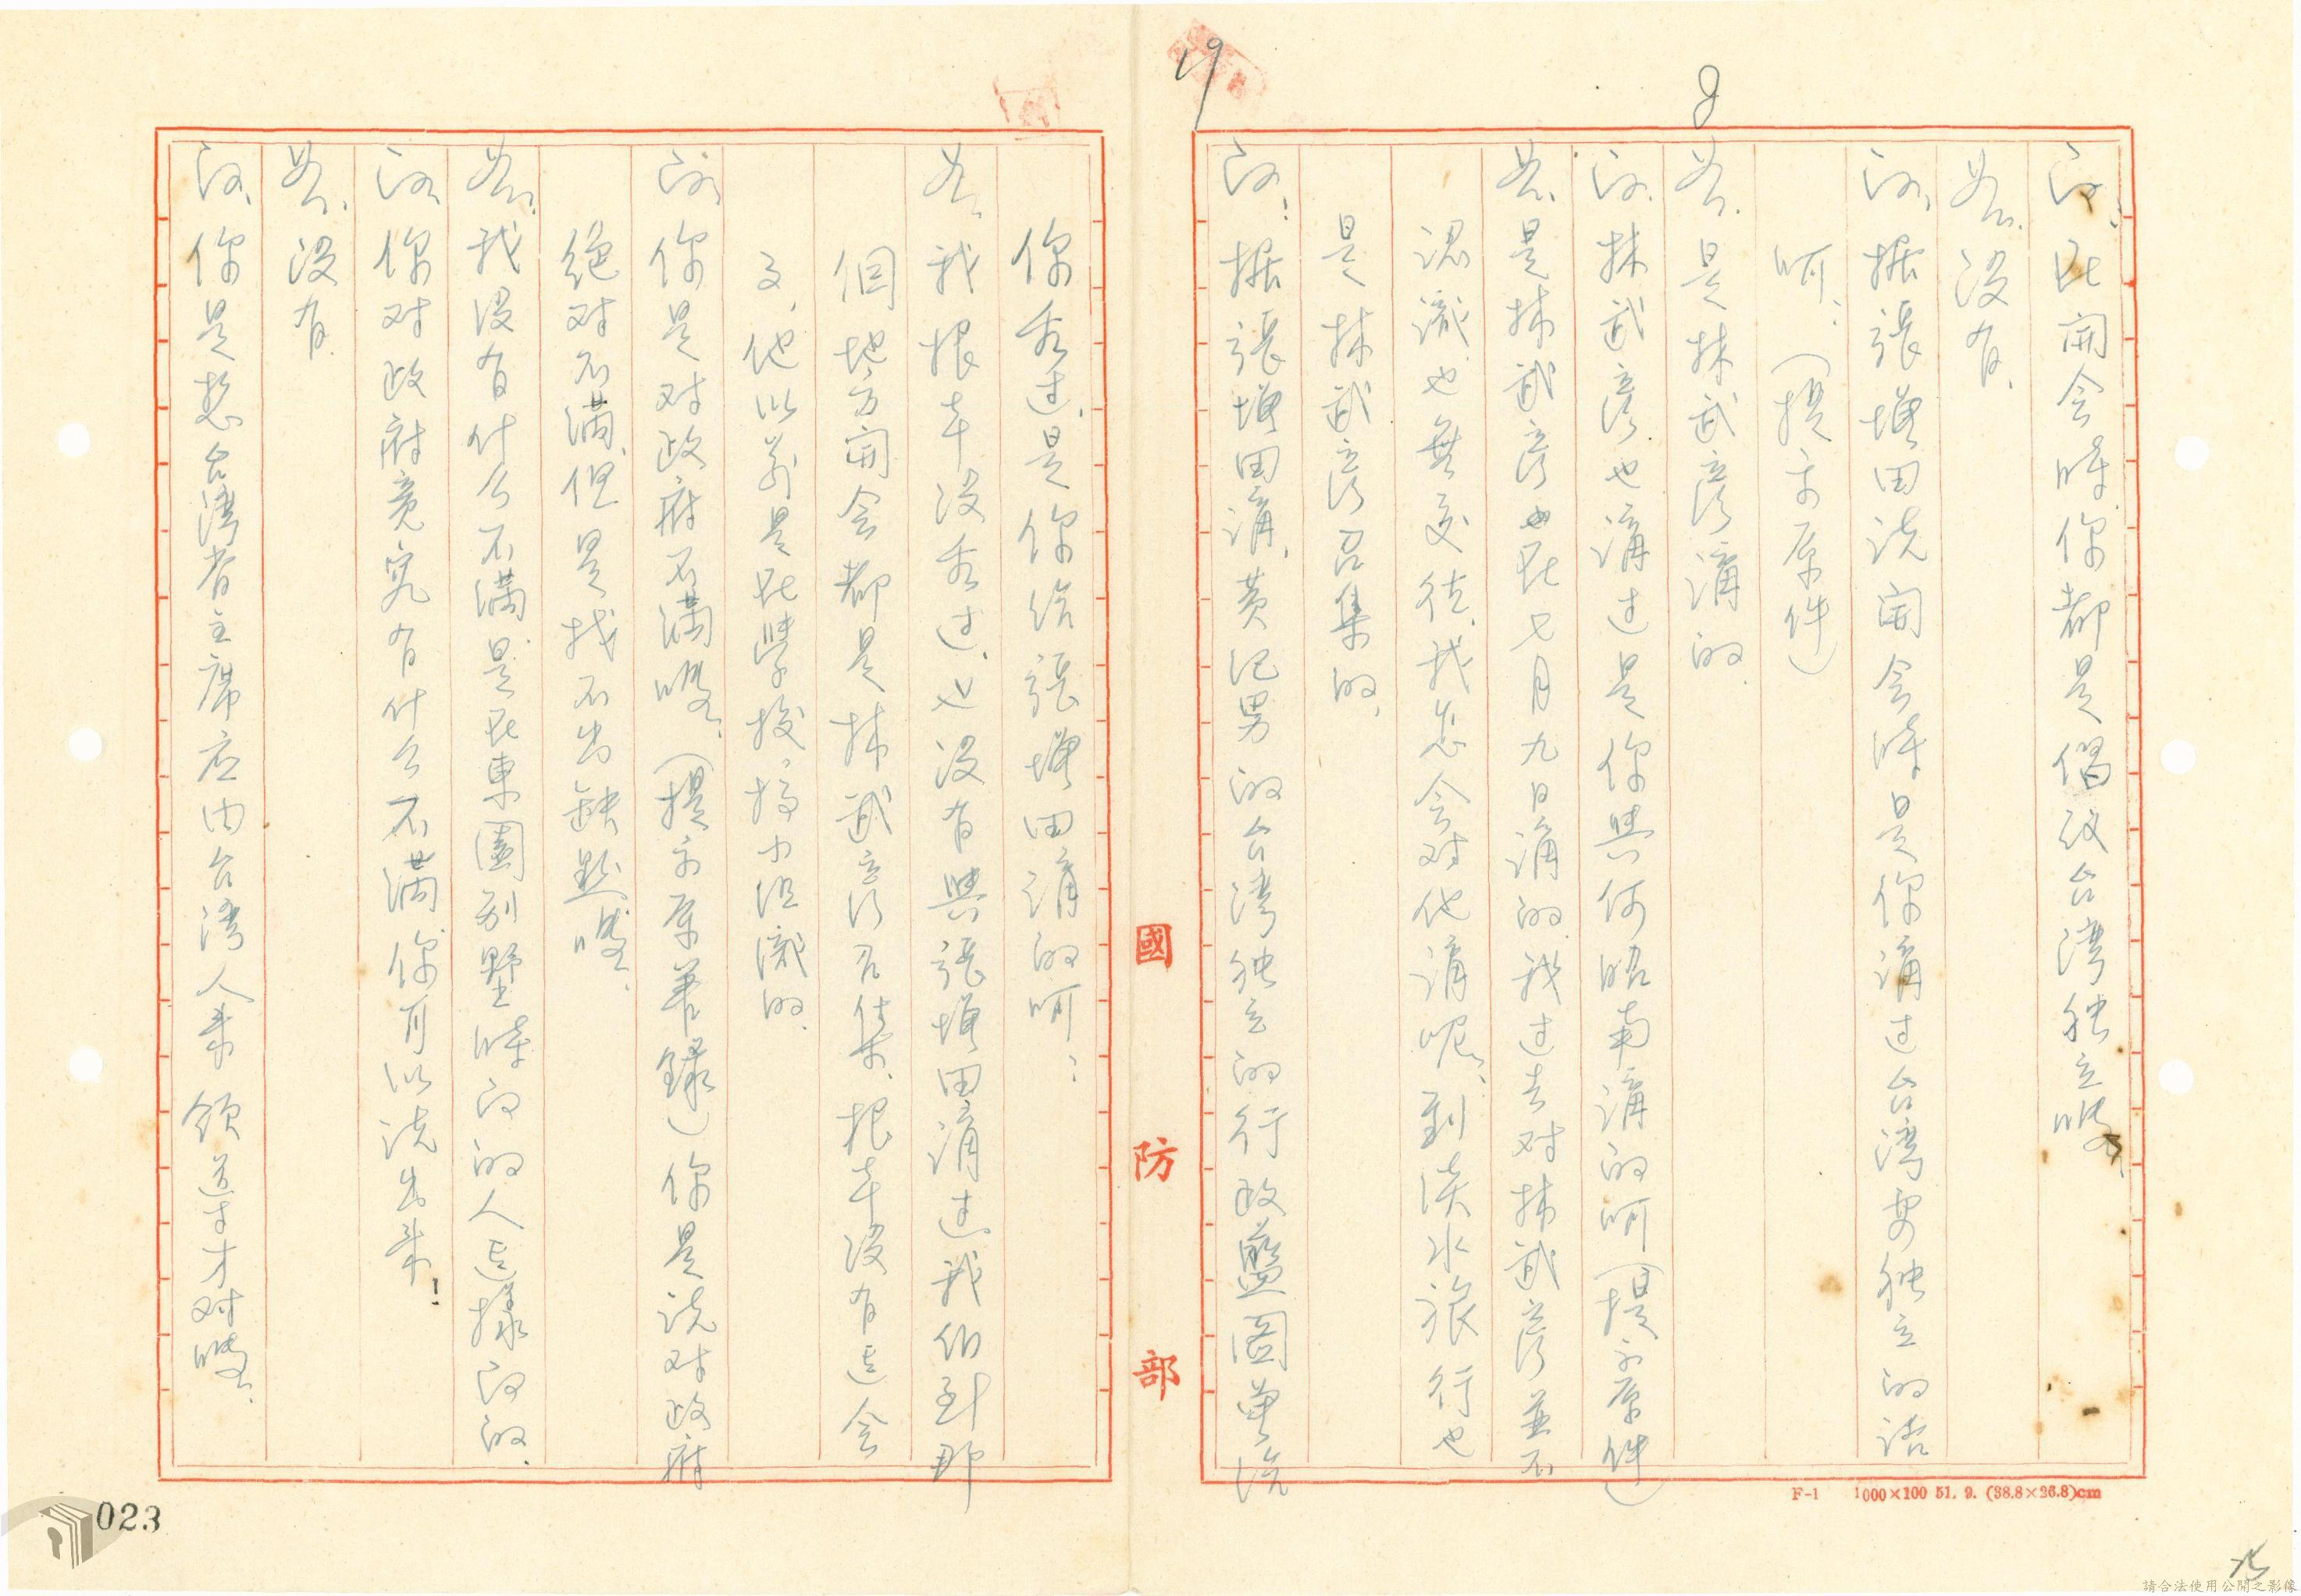 19
8
问：在開会時你都是倡议台湾独立嗎、
答、没有、
问、据張增田说開会時是你講过台湾要独立的话
呵：（提示原件）
答、是林武彦講的、
问、林武彦也講过是你與何昭南講的呵（提示原件）
答、是林武彦也在七月九日講的、我过去对林武彦並不
认識、也無交往、我怎会对他講呢、到淡水旅行也
是林武彦召集的、
问：据張增田講、黄纪男的台湾独立的行政藍图曾给
國防部
你看过、是你给張增田講的呵：
答、我根本没看过、也没有與張增田講过、我们到那
個地方開会都是林武彦召集、根本没有这会
文、他以前是在學校、搞小组織的、
问、你是对政府不满嗎、（提示原筆錄）你是说对政府
绝对不满、但是找不出缺點嗎、
答、我没有什么不满、是在東園别墅時问的人这樣问的、
问、你对政府竟究有什么不满、你可以说出来！
答、没有、
问、你是想台湾省主席应由台湾人来領导才对嗎、
F-1 1000×100 51. 9. (38.8×26.8)cm
023
請合法使用公開之影像